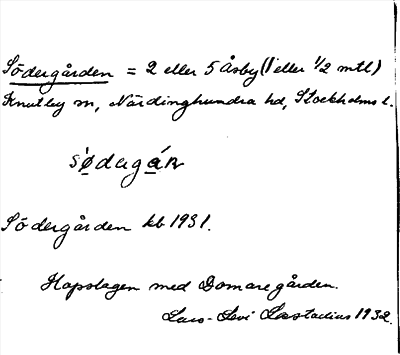 Södergården = 2 eller 5 Åsby (1 eller 1/2 mtl)
Knutby sn, Närdinghundra hd, Stockholms l.
Södergården kb 1931.
Hopslagen med Domaregården.
Lars-Levi Læstadius 1932.